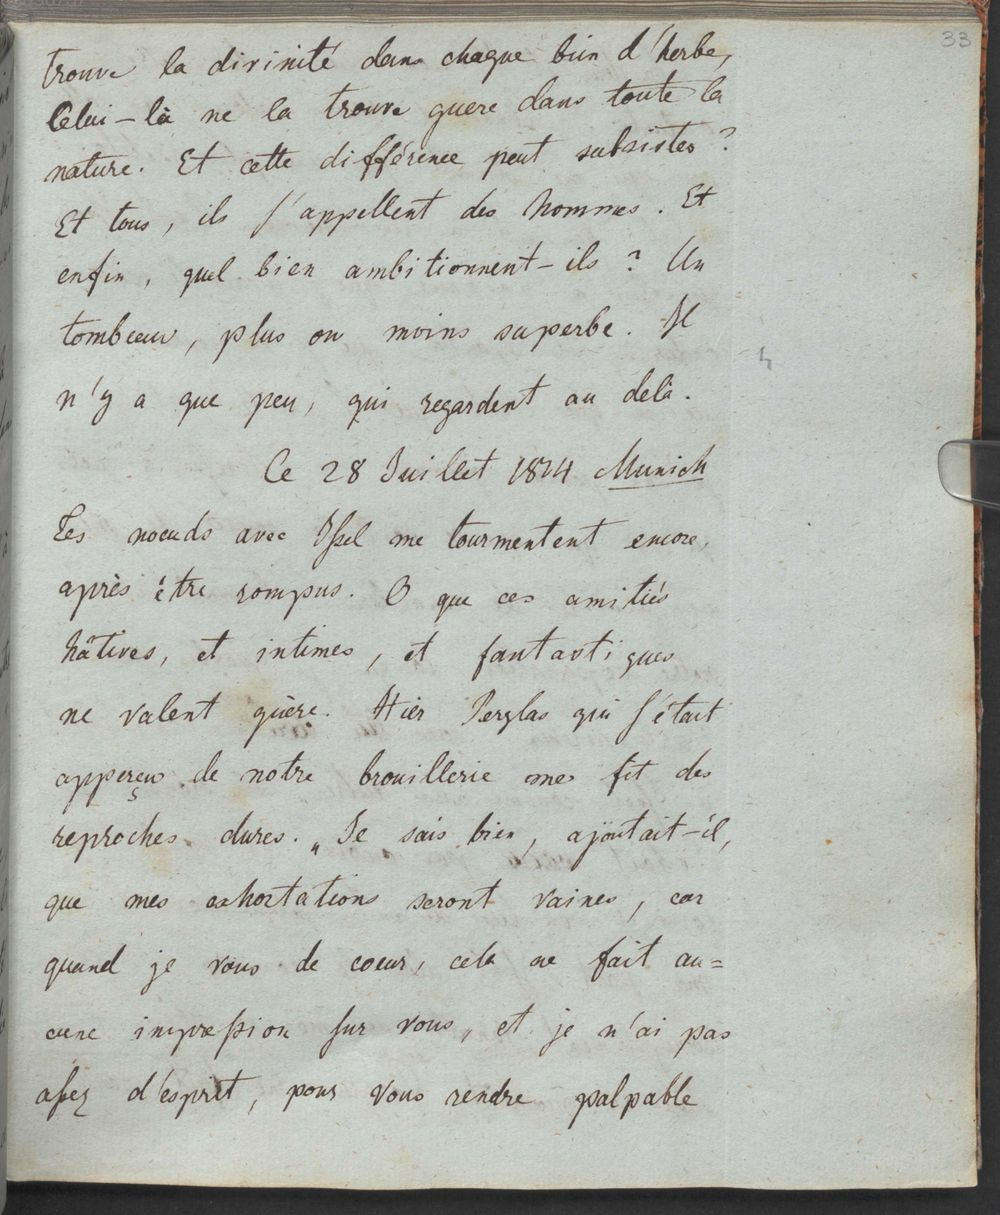 33
trouve la divinité dans chaque brin d'herbe,
Celui-là ne la trouve guere dans toute la
nature. Et cette différence peut subsister?
Et tous, ils s'appellent des hommes. Et
enfin, quel bien ambitionnent-ils? Un
tombeau, plus ou moins superbe. Il
n'y a que peu, qui regardent au delà.
Ce 28 Juillet 1814 Munich
Les noeuds avec Issel me tourmentent encore,
après être rompus. O que ces amitiés
hâtives, et intimes, et fantastiques
ne valent guère. Hier Perglas qui s'était
apperçu de notre brouillerie me fit des
reproches dures. „Je sais bien, ajoutait-il,
que mes exhortations seront vaines, car
quand je vous de coeur, cela ne fait au=
cune impression sur vous, et je n'ai pas
assez d'esprit, pour vous rendre palpable